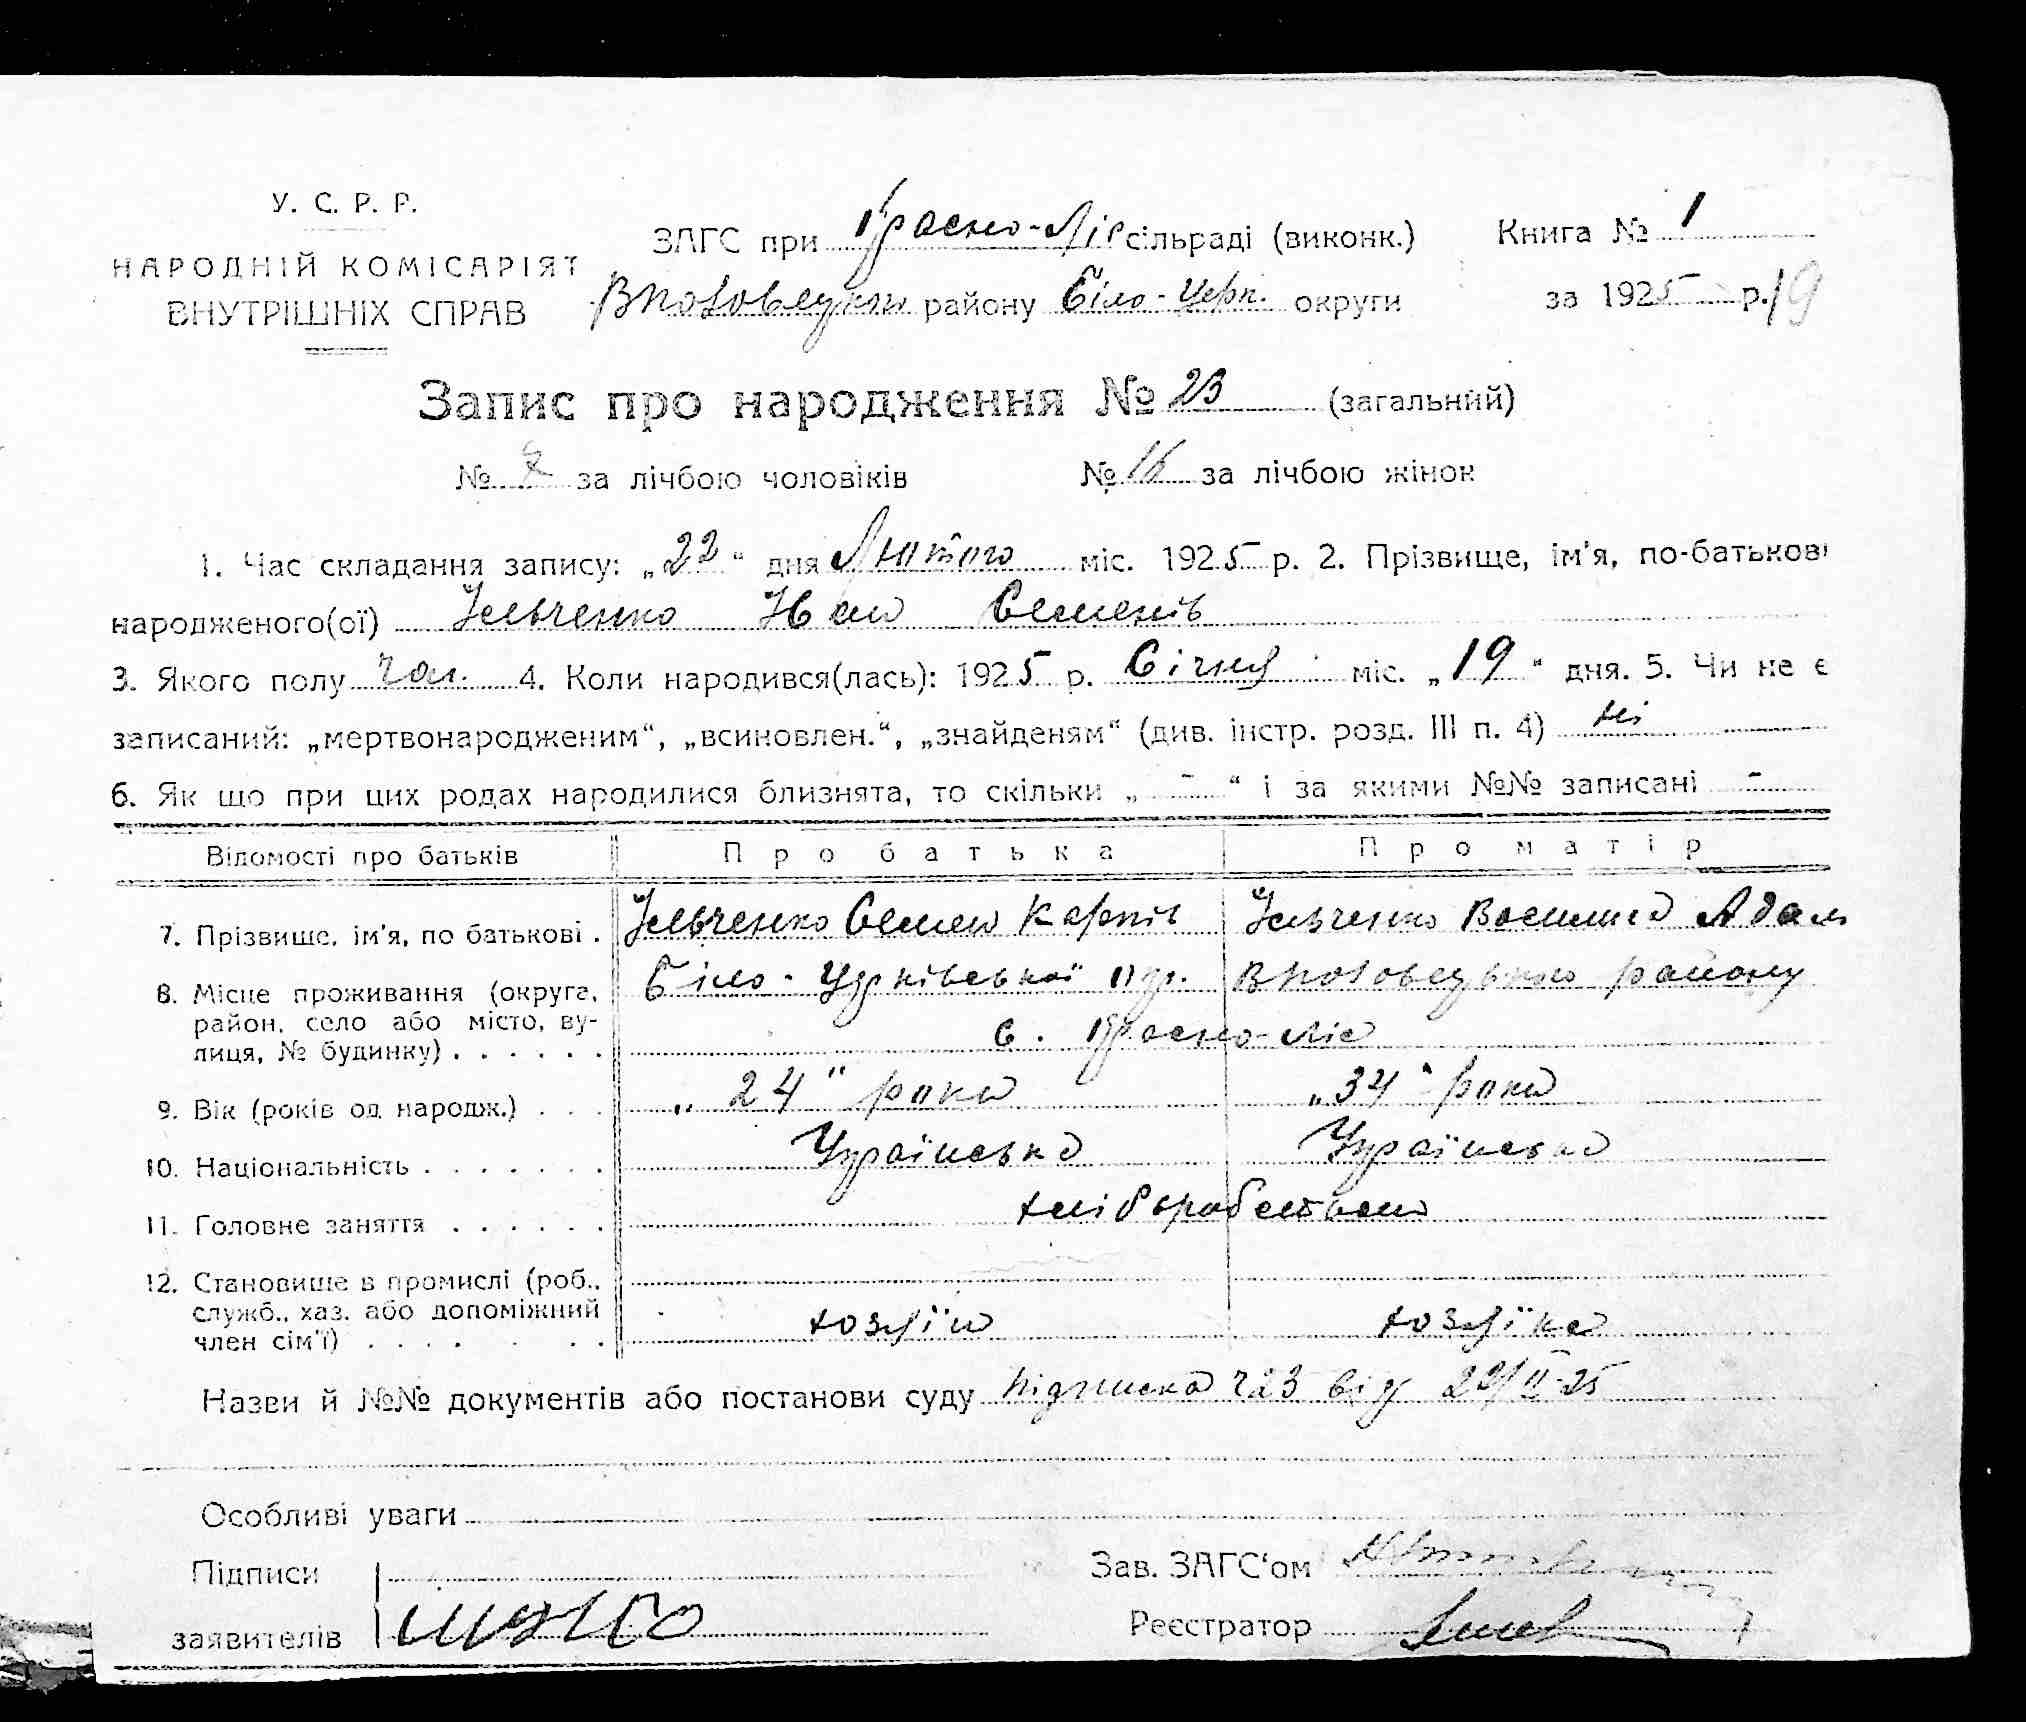 У. С. Р. Р.
НАРОДНІЙ КОМІСАРІЯТ
ВНУТРІШНІХ СПРАВ
ЗАГС при Красно-Ліс сільраді (виконк.) Книга № 1
району Біло-Церк. округи за 1925 р. 19
Запис про народження № 23 (загальний)
№ за лічбою чоловіків № 16 за лічбою жінок
1. Час складання запису: „22“ дня Лютого міс. 1925 р. 2. Прізвище, ім'я, по-батькові
народженого(ої) Ільченко Іван Семенів
3. Якого полу чол. 4. Коли народився(лась): 1925 р. Січня міс. „19“ дня. 5. Чи не є
записаний: „мертвонародженим“, „всиновлен.“, „знайденям“ (див. інстр. розд. III п. 4) ні
6. Як що при цих родах народилися близнята, то скільки „ - “ і за якими №№ записані -
Відомості про батьків Про батька Про матір
7. Прізвище, ім'я, по батькові . Ільченко Семен Карпів Ільченко Василина Адам
8. Місце проживання (округа, Біло-Церківської окр. району
район, село або місто, ву- с. Красно-Ліс
лиця, № будинку) . . . . . .
9. Вік (років од народж.) . . . „24“ роки „34“ роки
10. Національність . . . . . . . Українська Українська
11. Головне заняття . . . . . . хліборобством
12. Становище в промислі (роб.,
служб., хаз. або допоміжний хозяїн хозяїка
член сім'ї) . . . . . .
Назви й №№ документів або постанови суду підписка ч 23 від 22/II-25
Особливі уваги
Підписи Зав. ЗАГС‘ом
заявителів Реєстратор